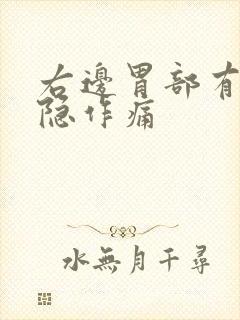 右邊胃部有
隐作痛
水無月千尋